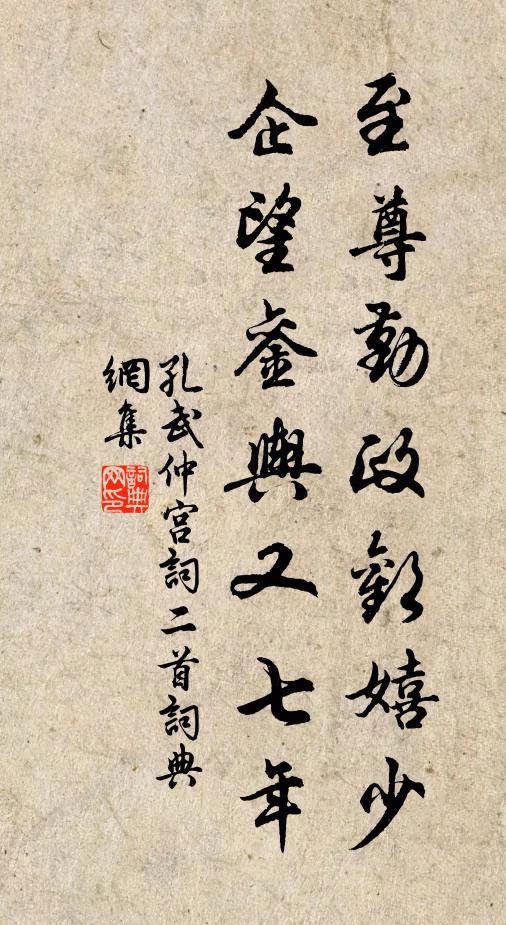 至尊勤政歡嬉少
企望鑾輿又七年
孔武仲宮詞二首詞典
網集
詞典
网印